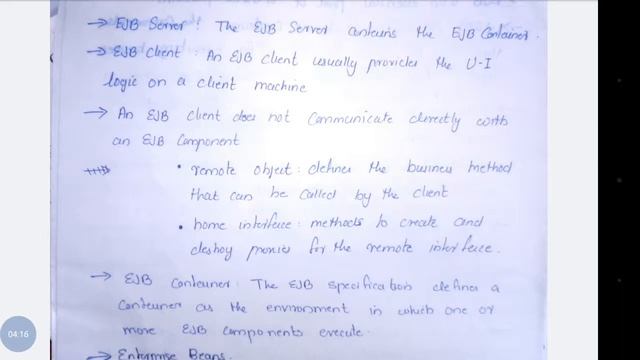 → EJB Server: The EJB Server contains the EJB Container.
→ EJB Client: An EJB client usually provides the U-I
logic on a client machine
→ An EJB client does not communicate directly with
an EJB Component
• remote object: defines the business method
that can be called by the client
• home interface: methods to create and
destroy proxies for the remote interface.
→ EJB Container: The EJB specification defines a
container as the environment in which one or
more EJB components execute.
→ Enterprise Beans.
04:16